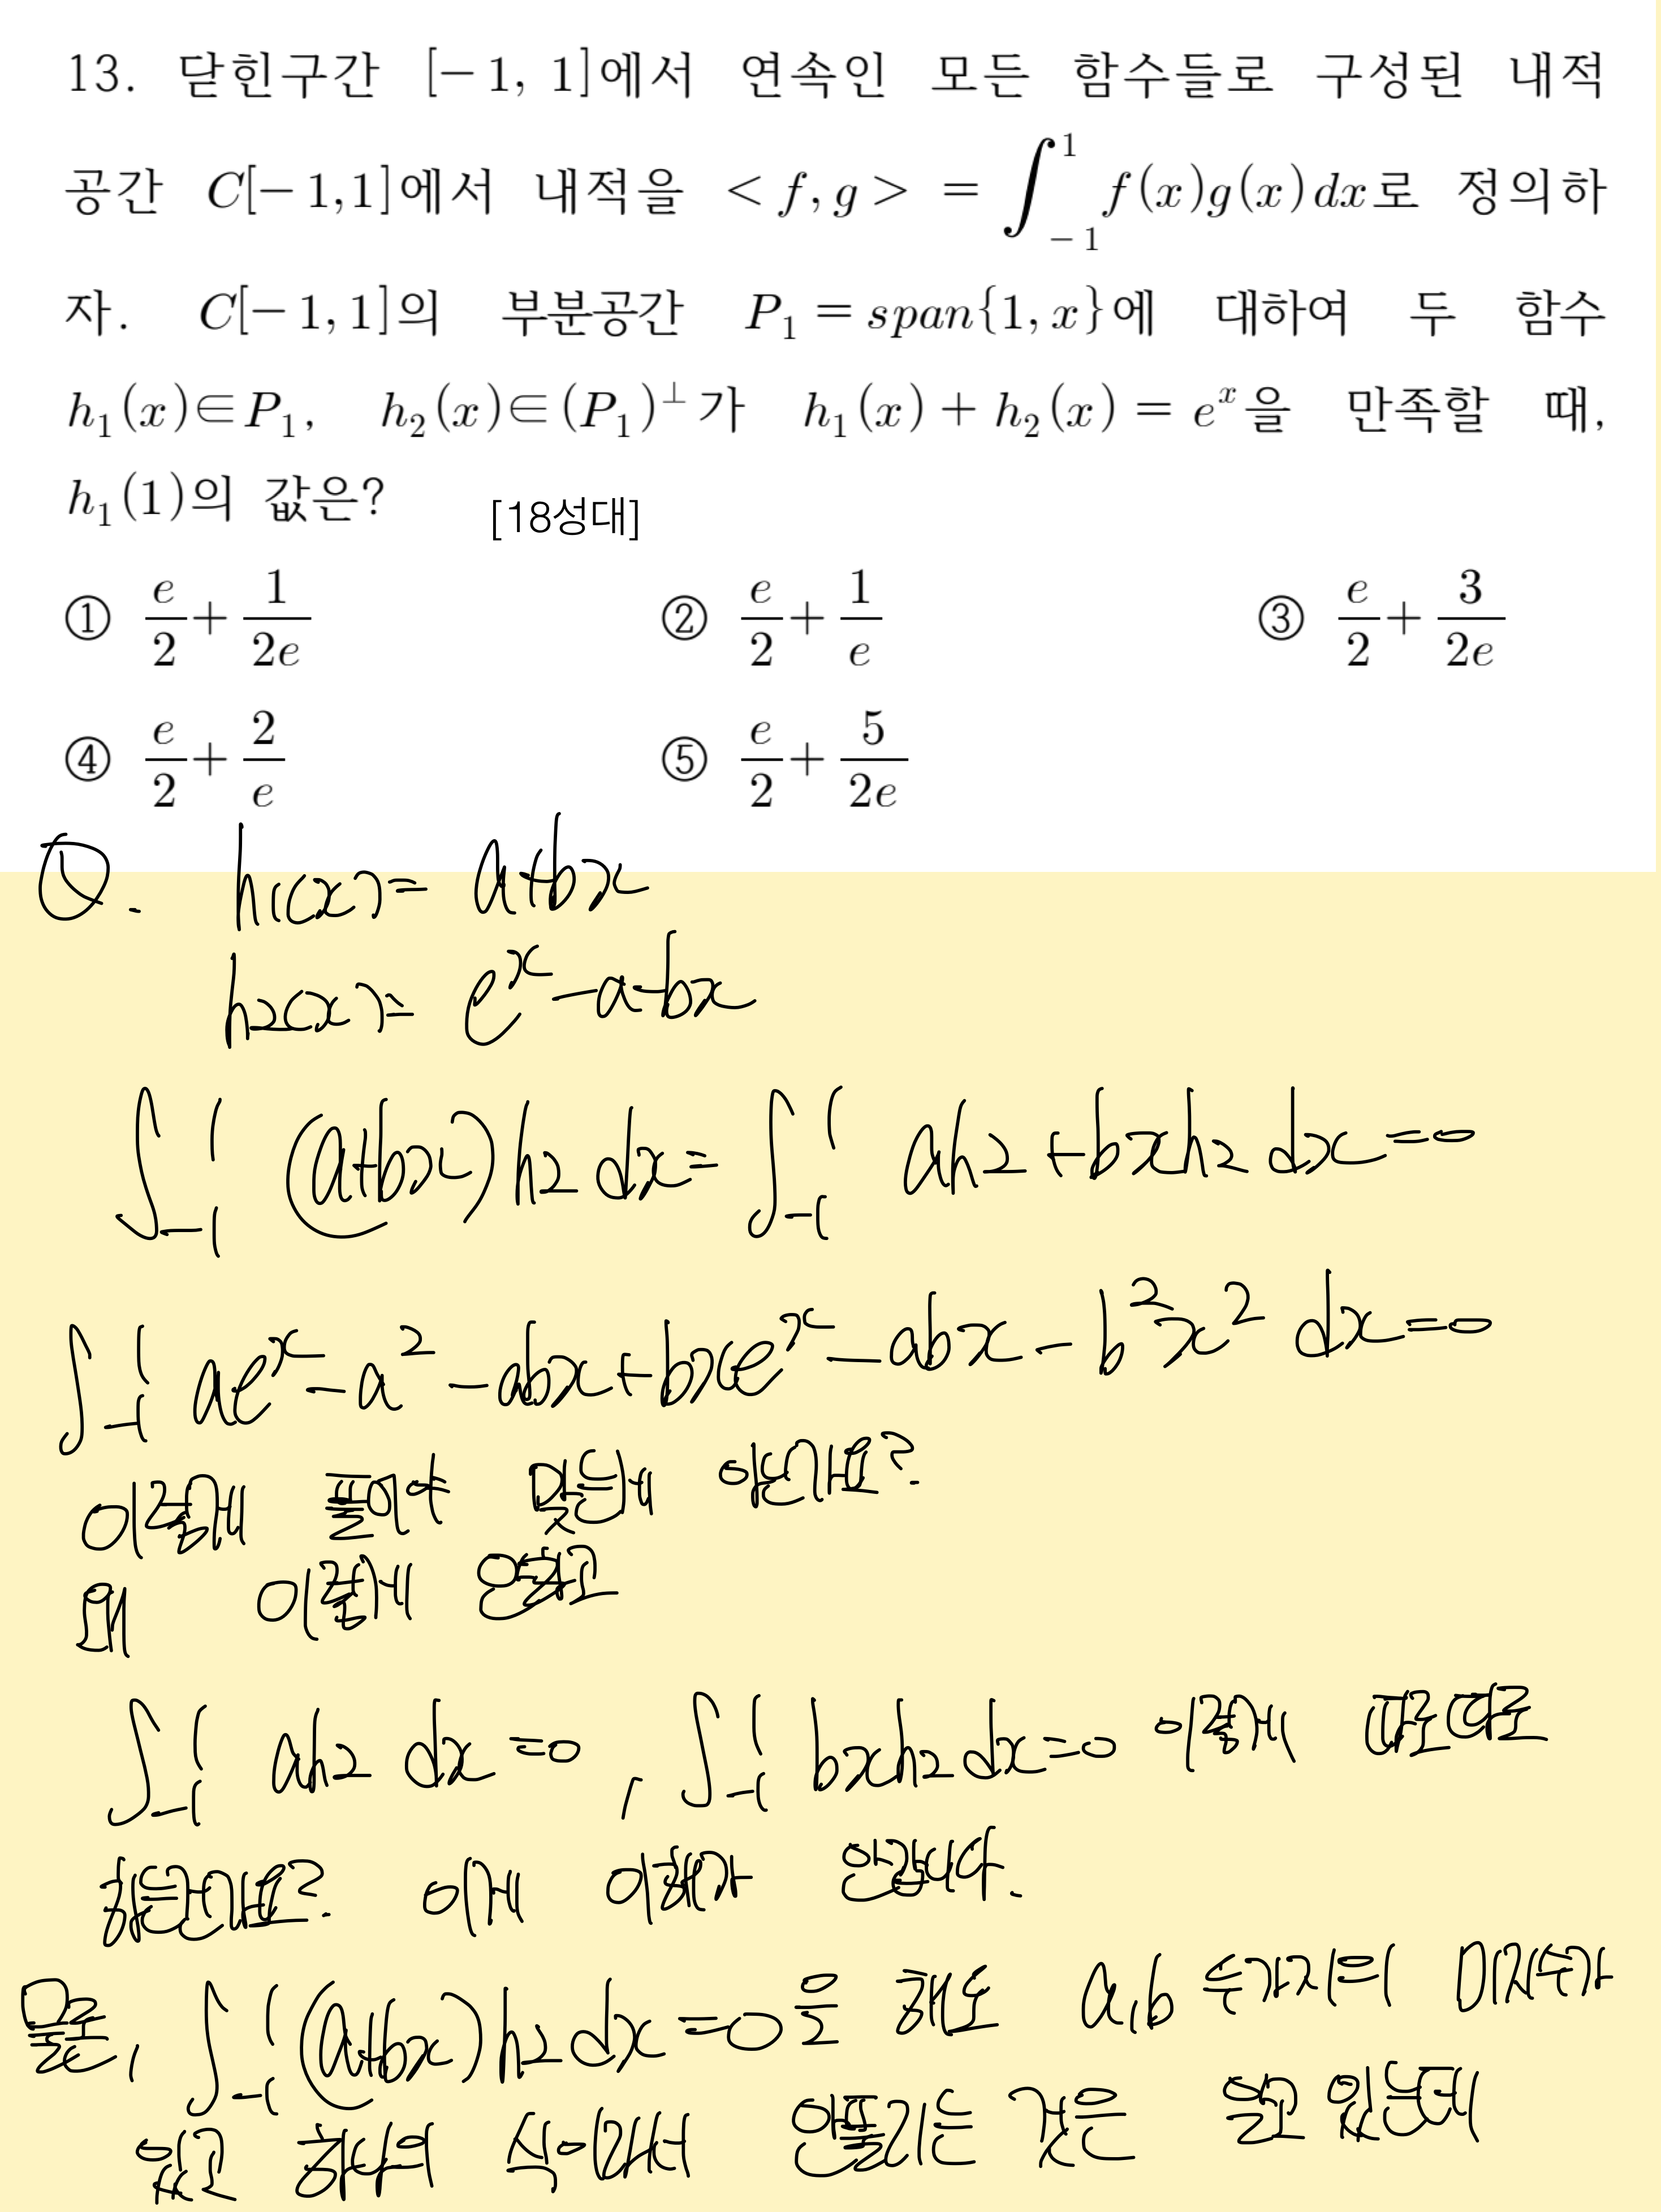 13. 닫힌구간 [-1, 1]에서 연속인 모든 함수들로 구성된 내적
공간 C[-1,1]에서 내적을 <f,g> = ∫_{-1}^{1} f(x)g(x)dx로 정의하
자. C[-1,1]의 부분공간 P₁ = span{1, x}에 대하여 두 함수
h₁(x)∈P₁, h₂(x)∈(P₁)^⊥가 h₁(x) + h₂(x) = e^x을 만족할 때,
h₁(1)의 값은? [18성대]
① e/2 + 1/2e ② e/2 + 1/e ③ e/2 + 3/2e
④ e/2 + 2/e ⑤ e/2 + 5/2e
Q. h1(x)= a+bx
h2(x)= e^x-a-bx
∫_{-1}^{1} (a+bx)h2 dx = ∫_{-1}^{1} ah2 + bxh2 dx=0
∫_{-1}^{1} ae^x - a² - abx + bxe^x - abx - b²x² dx=0
이렇게 풀어야 맞는게 아닌가요?
왜 이렇게 안하고
∫_{-1}^{1} ah2 dx =0, ∫_{-1}^{1} bxh2 dx=0 이렇게 따로따로
하는건가요? 이게 이해가 안갑니다.
물론, ∫_{-1}^{1} (a+bx)h2 dx=0을 해도 a,b 두가지의 미지수가
있고 하나의 식이라서 안풀리는 것은 알고 있는데